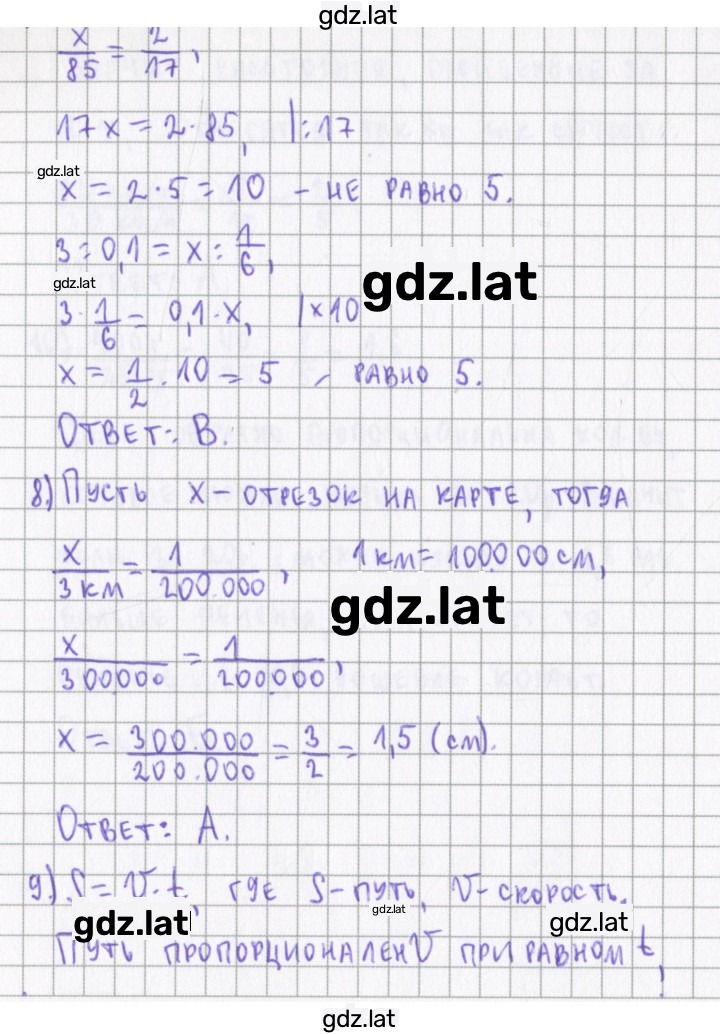 gdz.lat
x/85 = 2/17,
17x = 2·85, |:17
gdz.lat
x = 2·5 = 10 – НЕ РАВНО 5.
3:0,1 = x : 1/6,
gdz.lat
gdz.lat
3·1/6 = 0,1·x, |×10
x = 1/2·10 = 5 – РАВНО 5.
ОТВЕТ: В.
8) ПУСТЬ x – ОТРЕЗОК НА КАРТЕ, ТОГДА
x/3 км = 1/200.000, 1 км = 100000 см,
gdz.lat
x/300000 = 1/200000,
x = 300.000/200.000 = 3/2 = 1,5 (см).
ОТВЕТ: А.
9) S = V·t, ГДЕ S – ПУТЬ, V – СКОРОСТЬ.
gdz.lat gdz.lat gdz.lat
ПУТЬ ПРОПОРЦИОНАЛЕН V ПРИ РАВНОМ t,
gdz.lat